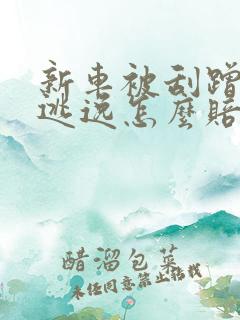 新车被刮蹭
逃逸怎麽赔
醋溜包菜
未经同意禁止搭载